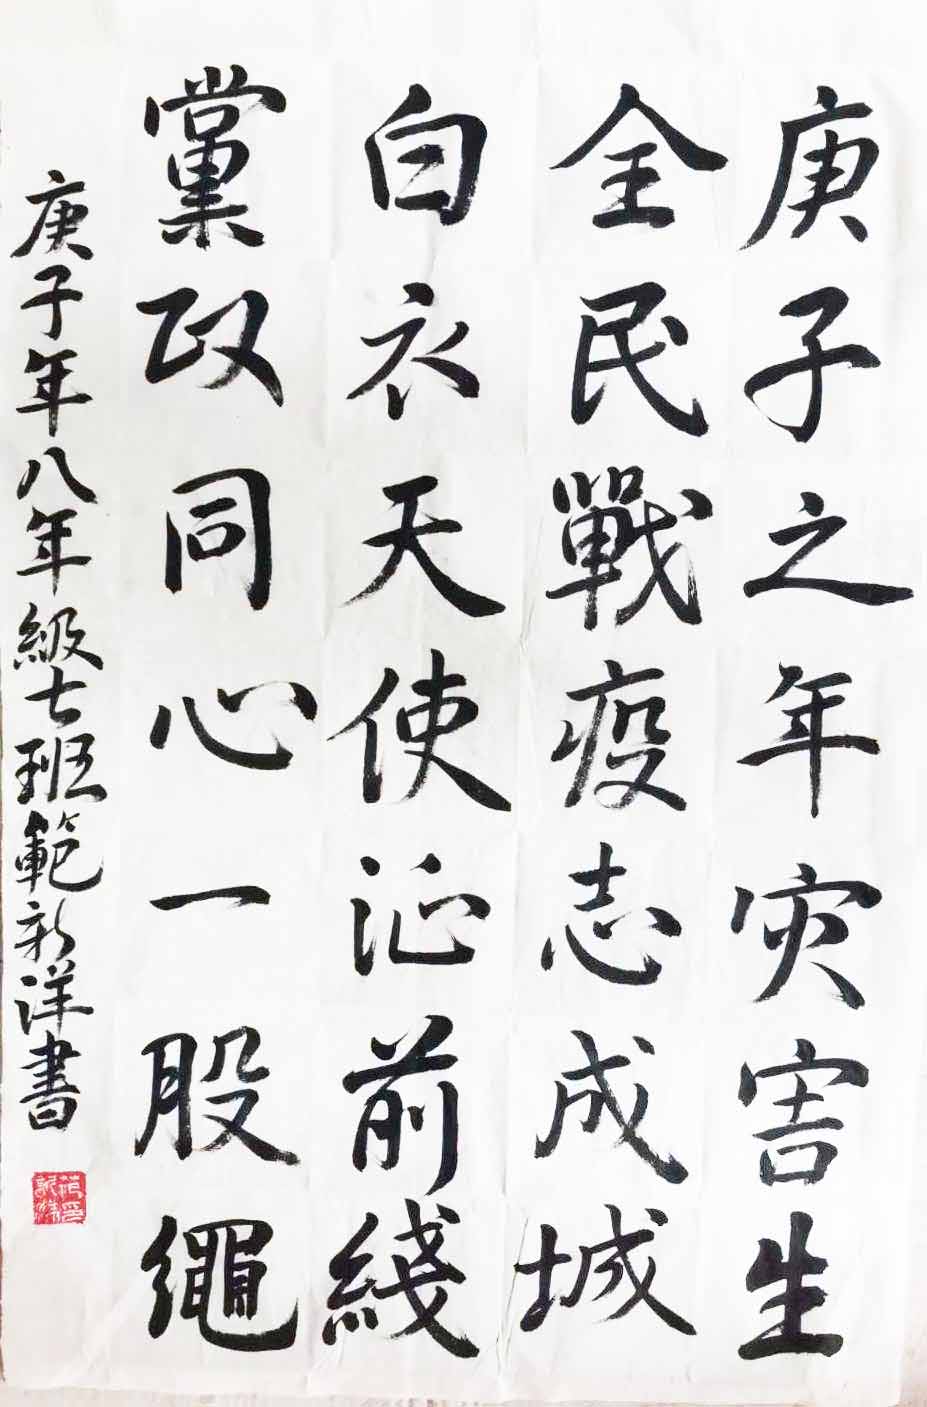 庚子之年灾害生
全民戰疫志成城
白衣天使沁前綫
黨政同心一股繩
庚子年八年級七班範新洋書